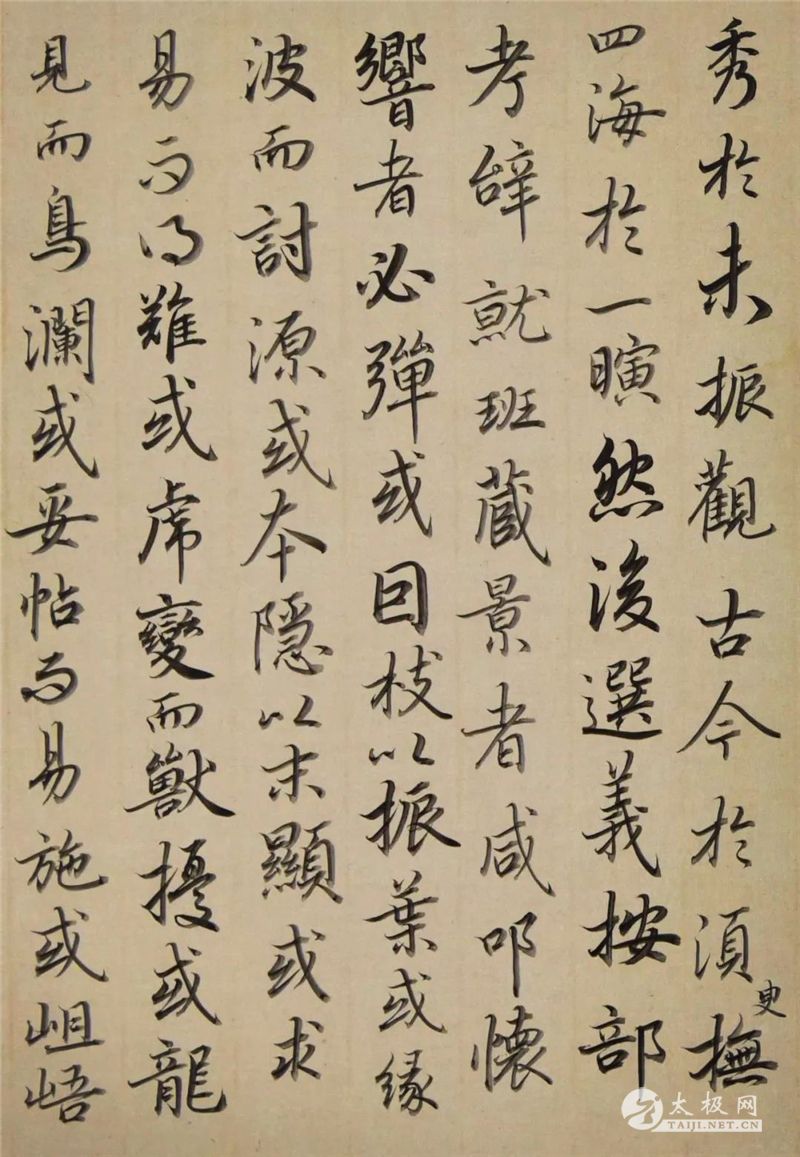 秀於未振觀古今於須臾撫
四海於一瞚然後選義按部
考辭就班藏景者咸叩懷
響者必彈或因枝以振葉或緣
波而討源或本隱以末顯或求
易而得難或虎變而獸擾或龍
見而鳥瀾或妥帖而易施或岨峿
太极网
TAIJI.NET.CN